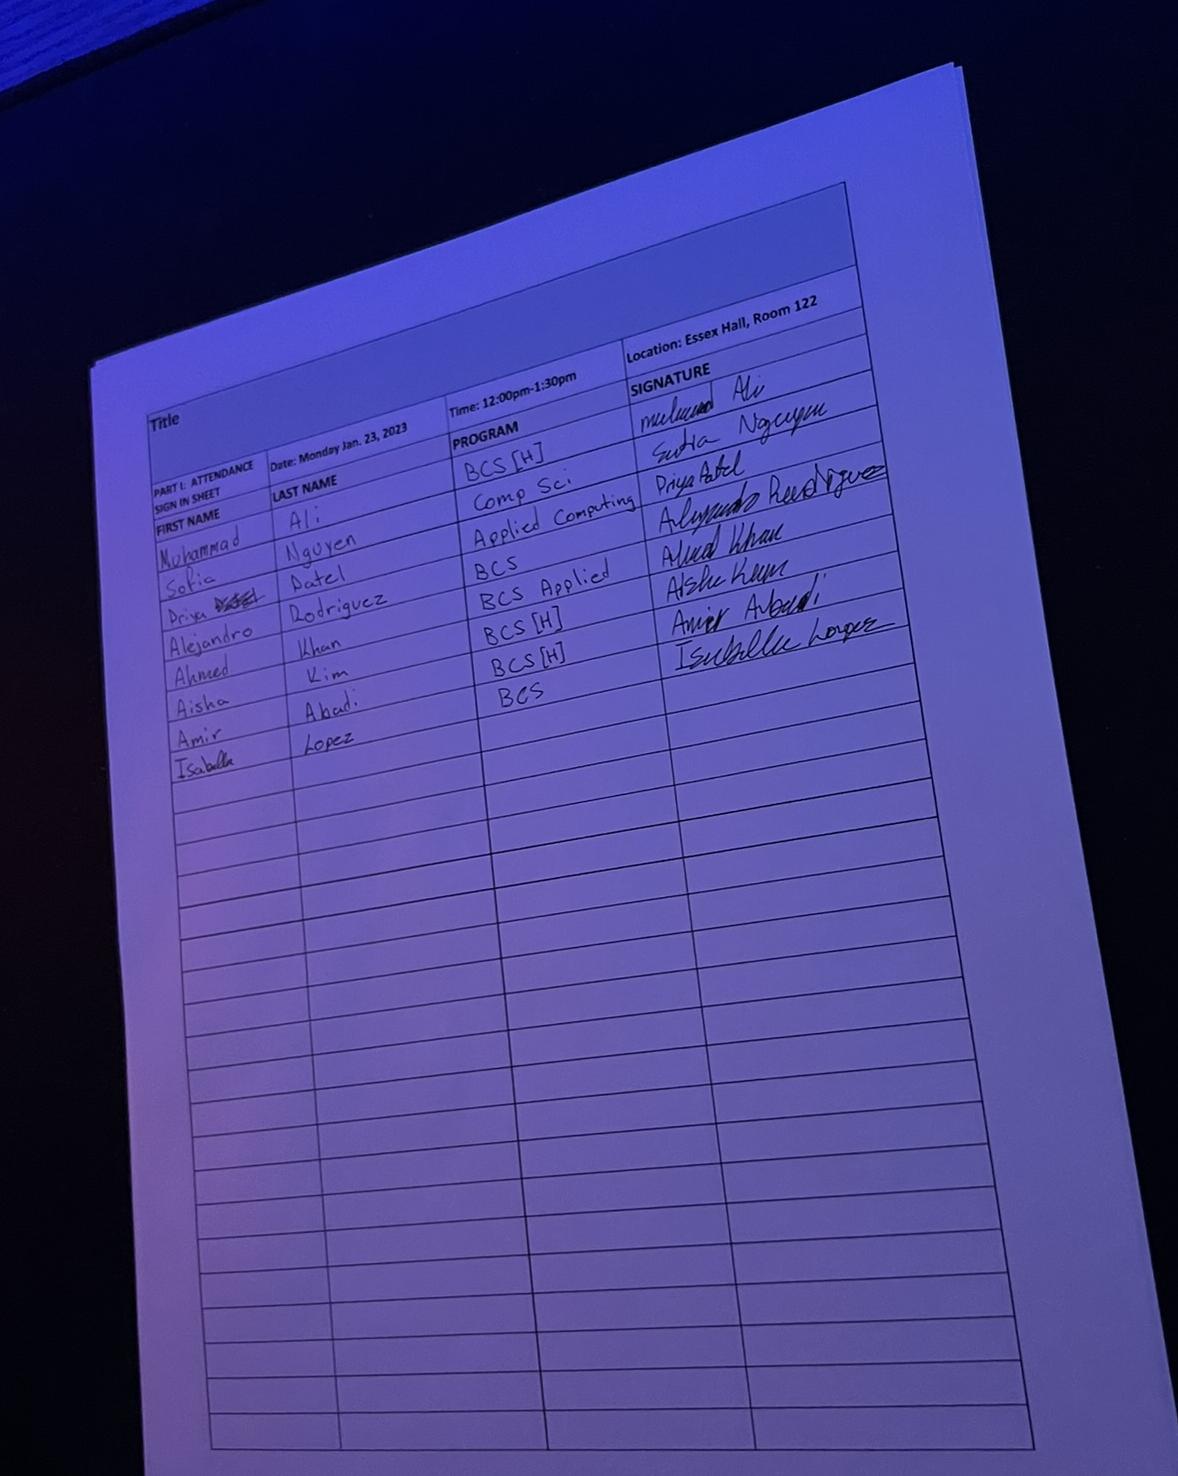 Title
PART I: ATTENDANCE SIGN IN SHEET Date: Monday Jan. 23, 2023 Time: 12:00pm-1:30pm Location: Essex Hall, Room 122
FIRST NAME LAST NAME PROGRAM SIGNATURE
Muhammad Ali BCS [H] Ali
Sofia Nguyen Comp Sci Nguyen
Priya Patel Applied Computing Priya Patel
Alejandro Rodriguez BCS Alejandro Rodriguez
Ahmed Khan BCS Applied Khan
Aisha Kim BCS [H]
Amir Abadi BCS [H] Amir Abadi
Isabella Lopez BCS Isabella Lopez